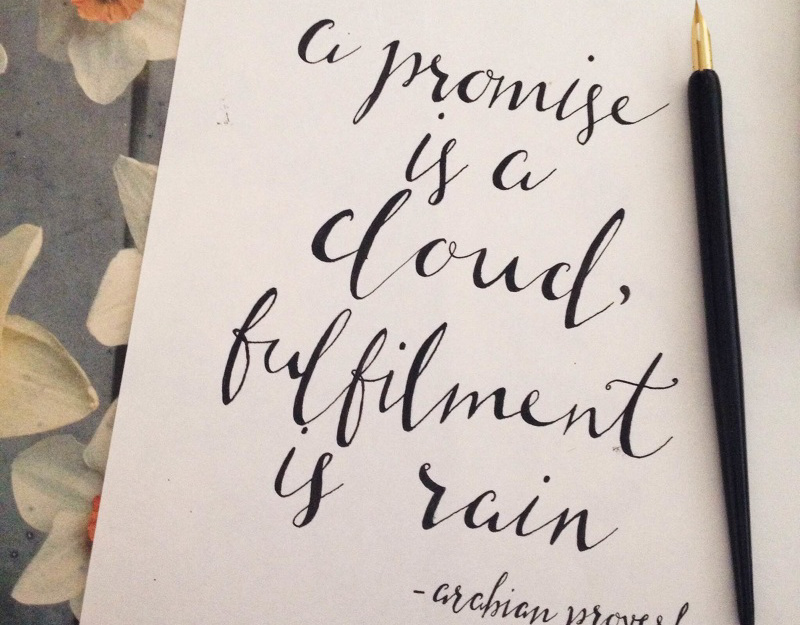 a promise
is a
cloud,
fulfilment
is rain
-arabian proverb